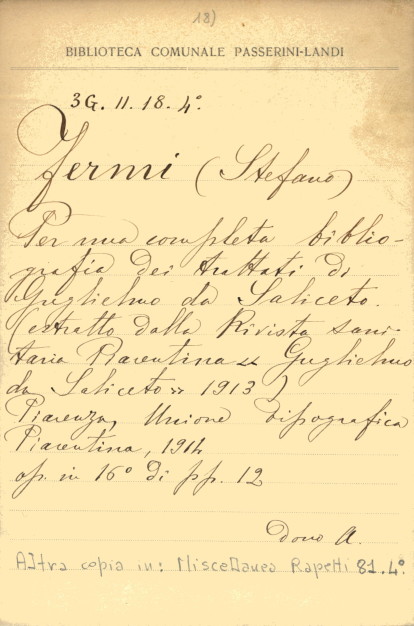 18)
BIBLIOTECA COMUNALE PASSERINI-LANDI
3G. 11. 18. 4°.
Fermi (Stefano)
Per una completa biblio-
grafia dei trattati di
Guglielmo da Saliceto.
(estratto dalla Rivista sani-
taria Piacentina << Guglielmo
da Saliceto >> 1913)
Piacenza, Unione tipografica
Piacentina, 1914
op. in 16° di pp. 12
dono A.
Altra copia in: Miscellanea Rapetti 81.4°